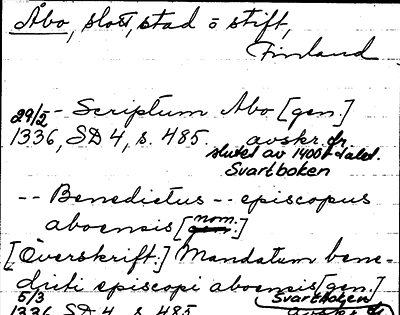 Åbo, slott, stad o stift,
Finland
29/2 -- Scriptum Abo [gen.]
1336, SD 4, s. 485. avskr. fr
slutet av 1400-talet.
Svartboken
-- Benedictus -- episcopus
nom.
aboensis [gen.]
[Överskrift:] Mandatum bene-
dicti episcopi aboensis [gen.]
5/3 Svartboken
1336 SD 4, s. 485 avskr. fr